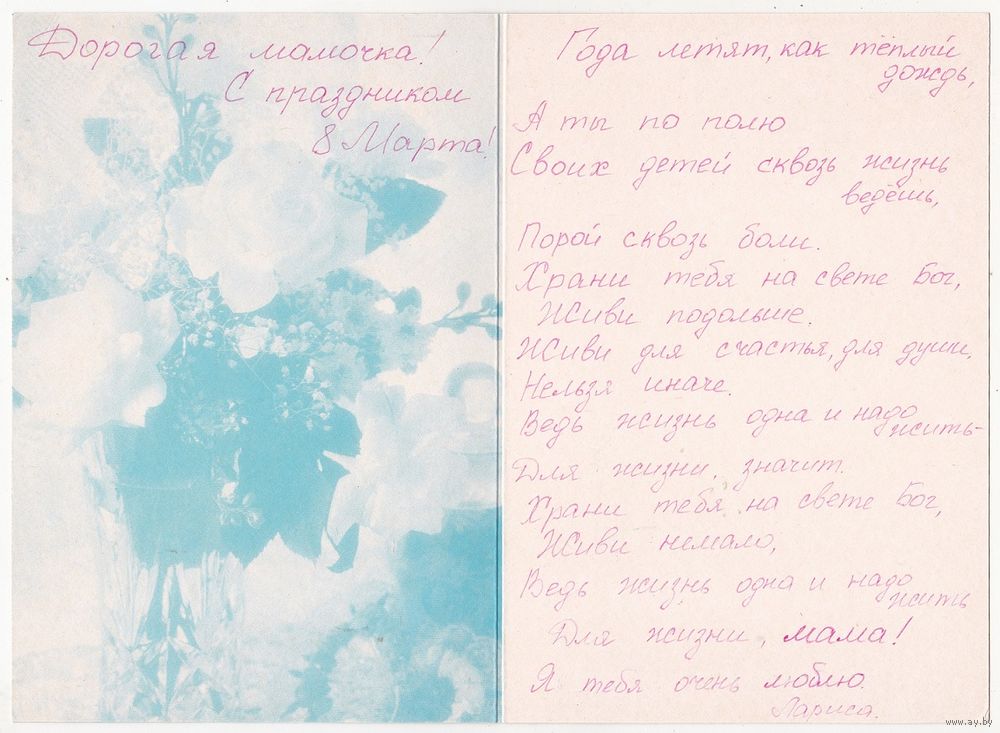 Дорогая мамочка!
С праздником
8 Марта!
Года летят, как тёплый
дождь,
А ты по полю
Своих детей сквозь жизнь
ведёшь,
Порой сквозь боли.
Храни тебя на свете Бог,
Живи подольше.
Живи для счастья, для души,
Нельзя иначе.
Ведь жизнь одна и надо
жить-
Для жизни, значит.
Храни тебя на свете Бог,
Живи немало,
Ведь жизнь одна и надо
жить
Для жизни, мама!
Я тебя очень люблю.
Лариса.
www.ay.by